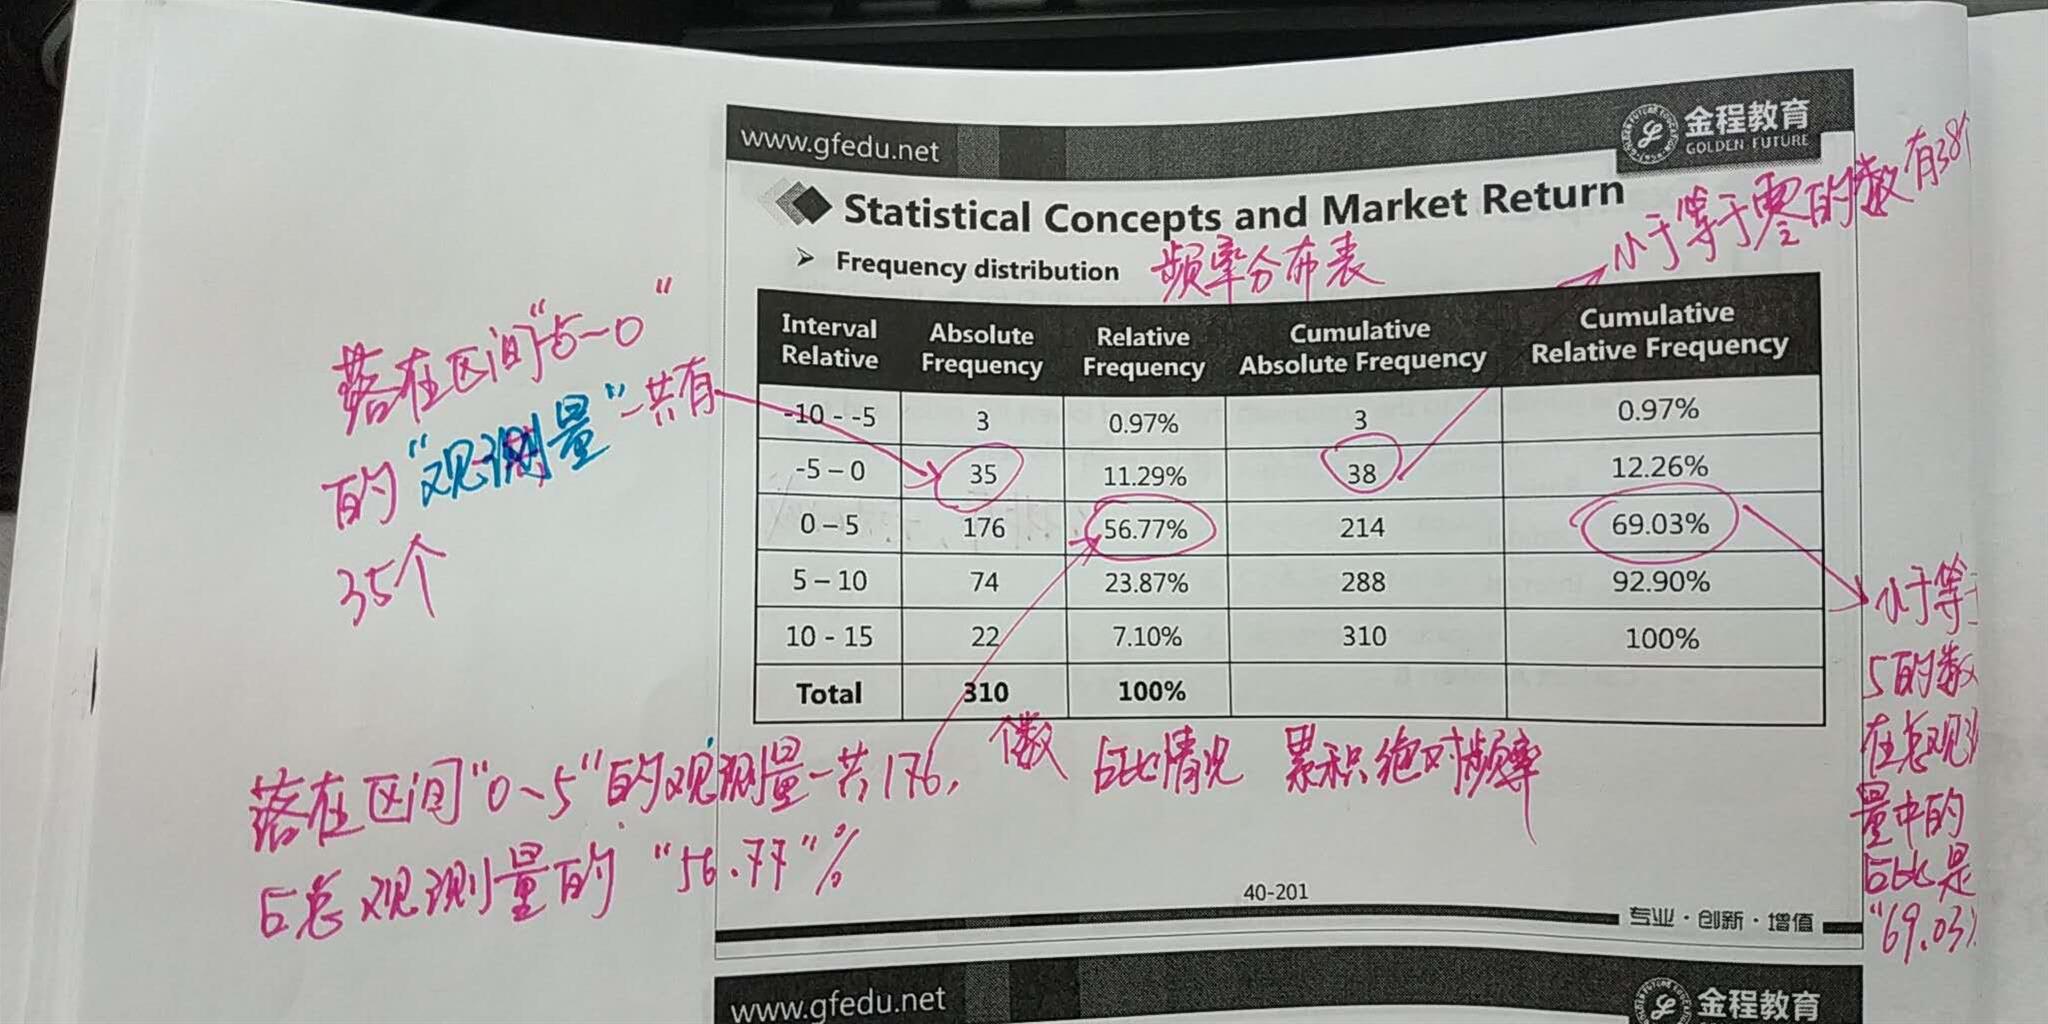 www.gfedu.net
金程教育
GOLDEN FUTURE
Statistical Concepts and Market Return
小于等于零的数有38个
➢ Frequency distribution 频率分布表
Interval Relative Absolute Frequency Relative Frequency Cumulative Absolute Frequency Cumulative Relative Frequency
-10 - -5 3 0.97% 3 0.97%
-5 – 0 35 11.29% 38 12.26%
0 – 5 176 56.77% 214 69.03%
5 – 10 74 23.87% 288 92.90%
10 - 15 22 7.10% 310 100%
Total 310 100%
个数 占比情况 累积绝对频率
落在区间“-5~0”
的“观测量”一共有
35个
落在区间“0~5”的观测量一共176,
占总观测量的“56.77”%
小于等
5的数
在总观
量中的
占比是
“69.03%
40-201
专业·创新·增值
www.gfedu.net
金程教育